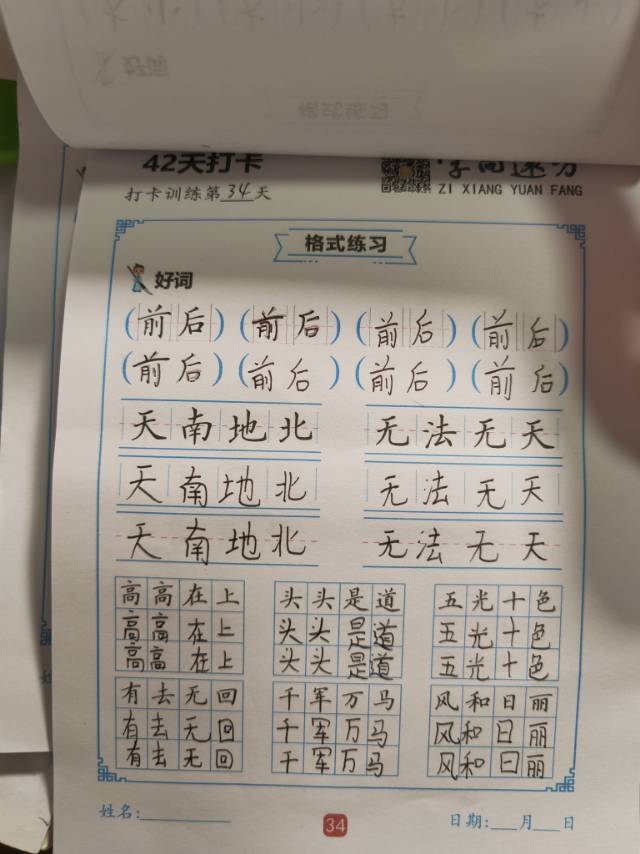 好词
格式练习
42天打卡
打卡训练第34天
ZI XIANG YUAN FANG
格式练习
好词
(前后) (前后) (前后) (前后)
(前后) (前后) (前后) (前后)
天南地北 无法无天
天南地北 无法无天
天南地北 无法无天
高高在上 头头是道 五光十色
高高在上 头头是道 五光十色
高高在上 头头是道 五光十色
有去无回 千军万马 风和日丽
有去无回 千军万马 风和日丽
有去无回 千军万马 风和日丽
姓名: 34 日期: 月 日